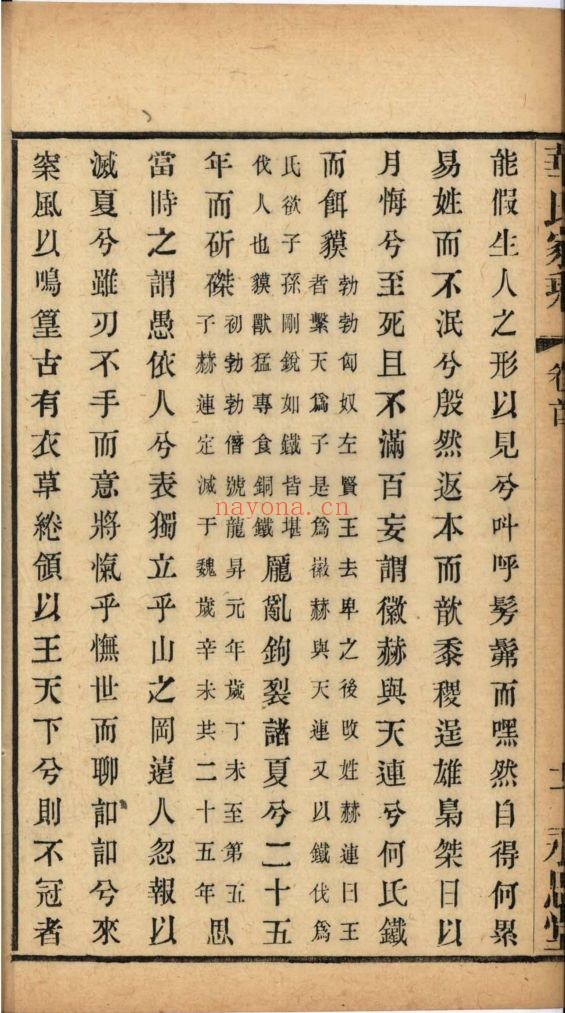 能假生人之形以見兮叫呼髣髴而嘿然自得何累
易姓而不泯兮殷然返本而歆黍稷逞雄梟桀日以
月悔兮至死且不滿百妄謂徽赫與天連兮何氏鐵
而餌貘
勃勃匈奴左賢王去卑之後改姓赫連曰王
者繫天爲子是爲徽赫與天連又以鐵伐爲
氏欲子孫剛銳如鐵皆堪
伐人也貘獸猛專食銅鐵
厖亂鉤裂諸夏兮二十五
年而斫磔
初勃勃僭號龍昇元年歲丁未至第五
子赫連定滅于魏歲辛未其二十五年
思
當時之謂愚依人兮表獨立乎山之岡遠人忽報以
滅夏兮雖刃不手而意將愾乎憮世而聊訆訆兮來
窾風以鳴篁古有衣草綣領以王天下兮則不冠者
華氏家乘
卷首
存思堂
nayona.cn